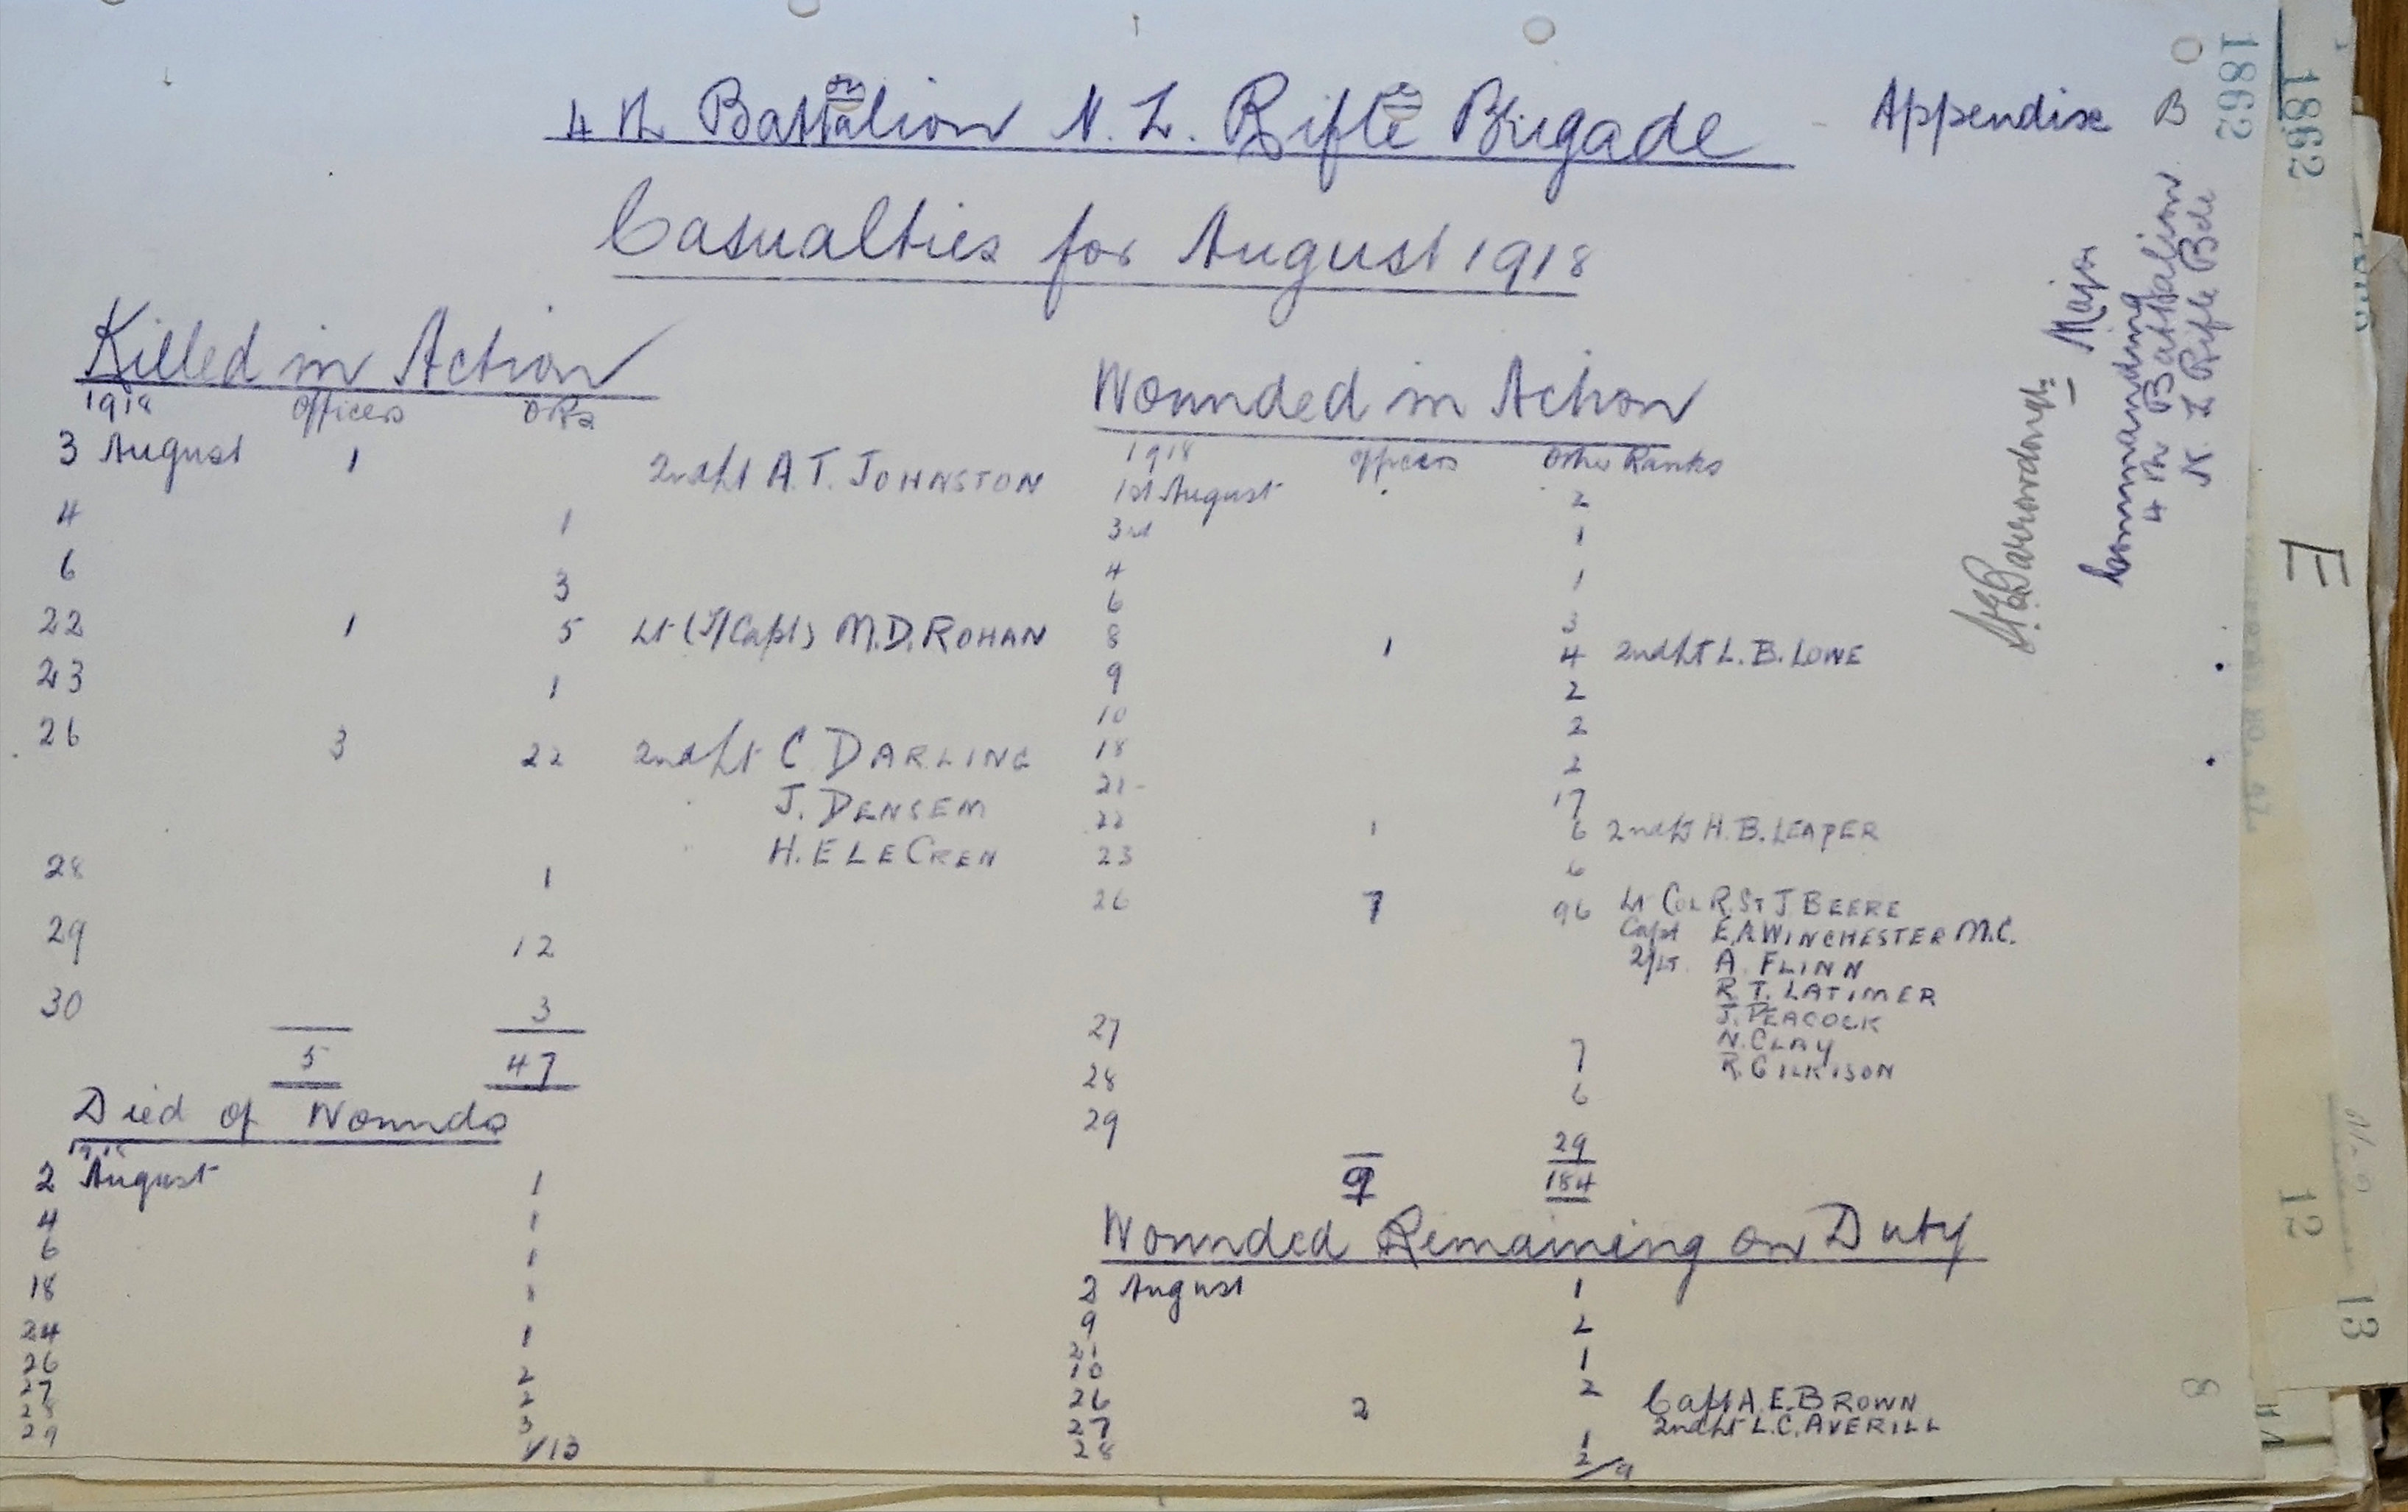 4th Battalion N. Z. Rifle Brigade Appendix B
Casualties for August 1918
Killed in Action
1918 Officers ORs
3 August 1 2nd Lt A.T. JOHNSTON
4 1
6 3
22 1 5 Lt (T/Capt) M.D. ROHAN
23 1
26 3 22 2nd Lt C DARLING
J. DENSEM
H. E LE CREN
28 1
29 12
30 3
5 47
Died of Wounds
1918
2 August 1
4 1
6 1
18 1
24 1
26 2
27 2
28 3
29 1/13
Wounded in Action
1918 Officers Other Ranks
1st August 2
3rd 1
4 1
6 3
8 1 4 2nd Lt L. B. LOWE
9 2
10 2
18 2
21 17
22 1 6 2nd Lt H. B. LEAPER
23 6
26 7 96 Lt COL R. ST J BEERE
Capt E.A WINCHESTER M.C.
2/LT. A. FLINN
R. T. LATIMER
J. PEACOCK
N. CLAY
R. GILKISON
27 7
28 6
29 29
9 184
Wounded Remaining on Duty
2 August 1
9 2
21 1
10 2
26 2 Capt A. E. BROWN
27 1 2nd Lt L.C. AVERILL
28 2/9
Major
Commanding
4th Battalion
N. Z Rifle Bde
1862
1862
E
12
13
8